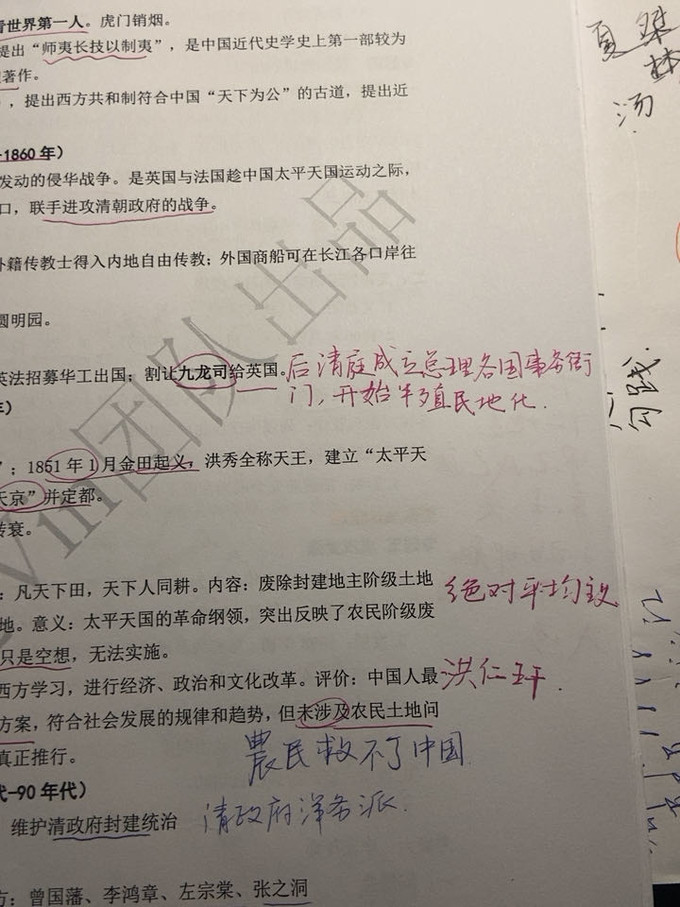 青世界第一人。虎门销烟。
提出“师夷长技以制夷”，是中国近代史学史上第一部较为
著作。
，提出西方共和制符合中国“天下为公”的古道，提出近
-1860 年）
发动的侵华战争。是英国与法国趁中国太平天国运动之际，
口，联手进攻清朝政府的战争。
外籍传教士得入内地自由传教；外国商船可在长江各口岸往
圆明园。
英法招募华工出国；割让九龙司给英国。
后清庭成立总理各国事务衙
门，开始半殖民地化.
年）
”；1851 年 1 月金田起义，洪秀全称天王，建立“太平天
天京”并定都。
转衰。
：凡天下田，天下人同耕。内容：废除封建地主阶级土地
绝对平均主义
地。意义：太平天国的革命纲领，突出反映了农民阶级废
只是空想，无法实施。
西方学习，进行经济、政治和文化改革。评价：中国人最
洪仁玕.
方案，符合社会发展的规律和趋势，但未涉及农民土地问
真正推行。
農民救不了中国
代-90 年代）
维护清政府封建统治
清政府洋务派.
方：曾国藩、李鸿章、左宗棠、张之洞
Vin团队出品
夏 桀
汤